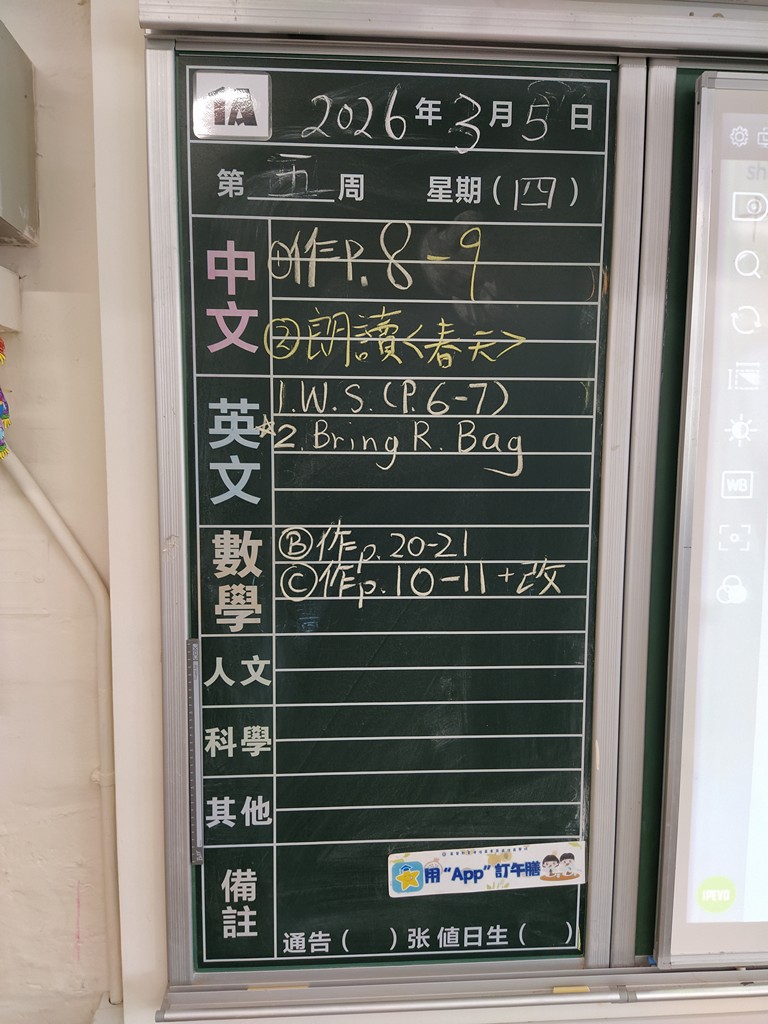 1A 2026年3月5日
第五周 星期(四)
中文
①作P.8-9
②朗讀<春天>
英文
1.W.S.(P.6-7)
☆2.Bring R. Bag
數學
Ⓑ作p.20-21
Ⓒ作p.10-11+改
人文
科學
其他
備註
用"App"訂午膳
通告( )张 值日生( )
WB
IPEVO